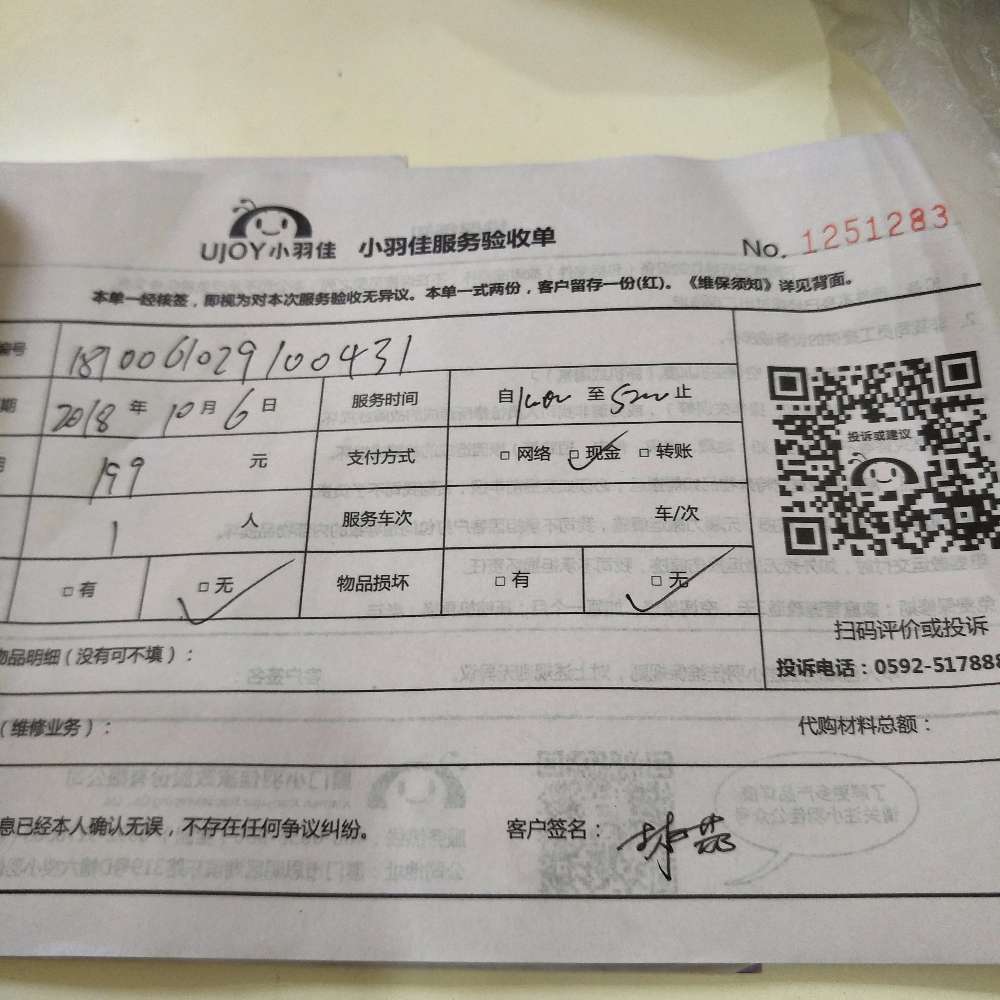 UJOY小羽佳 小羽佳服务验收单 No. 1251283
本单一经核签，即视为对本次服务验收无异议。本单一式两份，客户留存一份(红)。《维保须知》详见背面。
编号 1810061029100431
期 2018 年 10 月 6 日 服务时间 自 至 止
199 元 支付方式 □ 网络 □ 现金 □ 转账
1 人 服务车次 车/次
□ 有 □ 无 物品损坏 □ 有 □ 无
投诉或建议
扫码评价或投诉
投诉电话：0592-517888
物品明细（没有可不填）：
（维修业务）： 代购材料总额：
息已经本人确认无误，不存在任何争议纠纷。 客户签名：